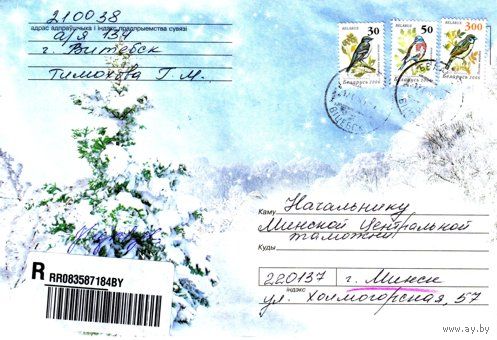 210038
адрас адпраўшчыка і індэкс прадпрыемства сувязі
а/я 134
г. Витебск
Тимохова Г. М.
BELARUS
30
Беларусь 2006
BELARUS
50
Беларусь 2006
BELARUS
300
Беларусь
Каму Начальнику
Минской Центральной
таможни
Куды
220137 г. Минск
індэкс
ул. Холмогорская, 57
R RR083587184BY
www.ay.by